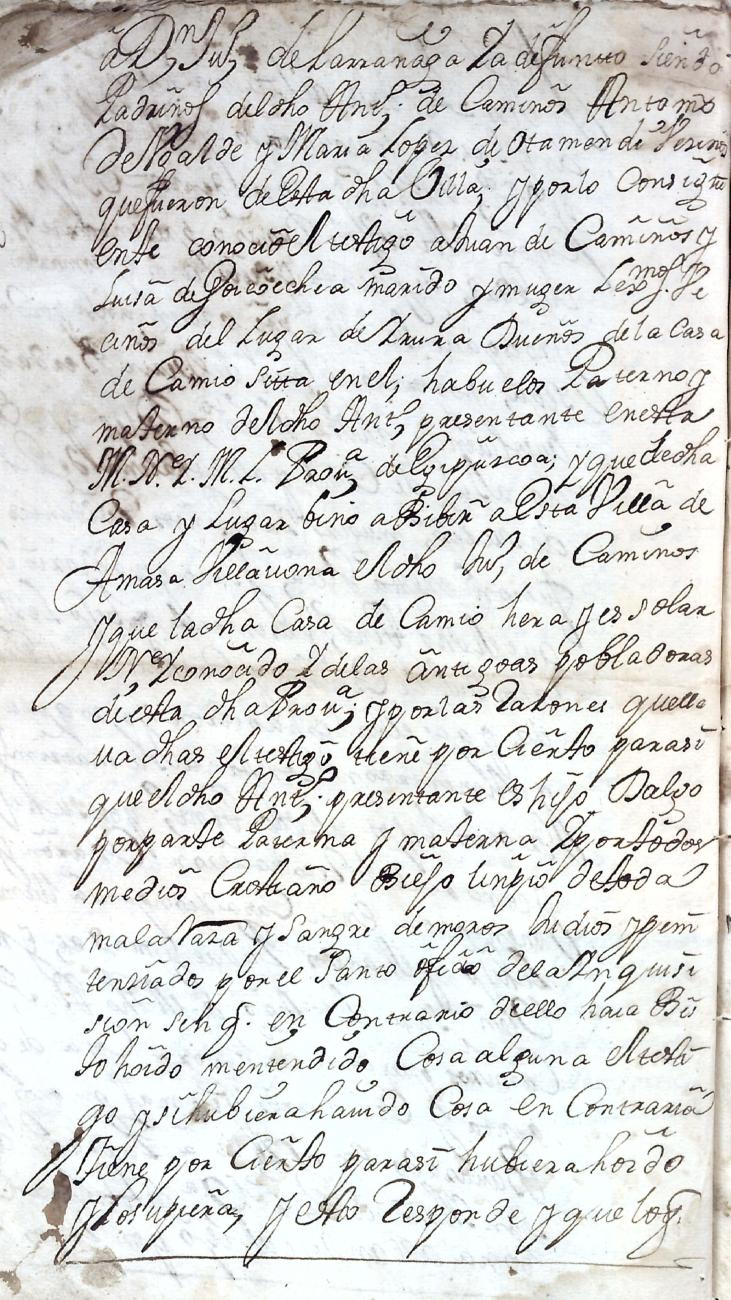 a Dn Ju, de Larrañaga Ya defuntto siendo
Padriños del dho Antº de Camiños Antonio
de Ugalde y Maria Lopez de Otamendi Vecinos
que fueron de Esta dha Villa, y por lo Consigui
ente conocio el testigo a Juan de Camiños y
Luisa de Goicoechea marido y muger Lexmos. Ve
cinos del Lugar de Yrura Dueños de la Casa
de Camio sitta en el; habuelos Paterno y
materno del dho Antº presentante en esta
M. N. Y. M. L. Provª de Guipuscoa; y que de dha
Casa y Lugar bino a Bibir a Esta Villa de
Amasa Villavona el dho Ju, de Camiños
y que la dha Casa de Camio hera y es solar
Ne Y conocido Y de las antigoas pobladoras
de esta dha Provª; y por las Razones que lle
va dhas el testigo tiene por Cierto para si
que el dho Antº presentante es hijo Dalgo
por parte Paterna y materna Y por todos
medios Cristiano Biejo linpio de toda
mala Raza y Sangre de moros Judios y peni
tensiados por el Santo ofidio de la Ynquisi
sion sin q. en Contrario de ello haia Bis
to hoido ni entendido Cosa alguna el testi
go y si hubiera havido Cosa en Contrario
Tiene por Cierto para si hubiera hoido
y lo supiera, y esto Responde y que lo q.